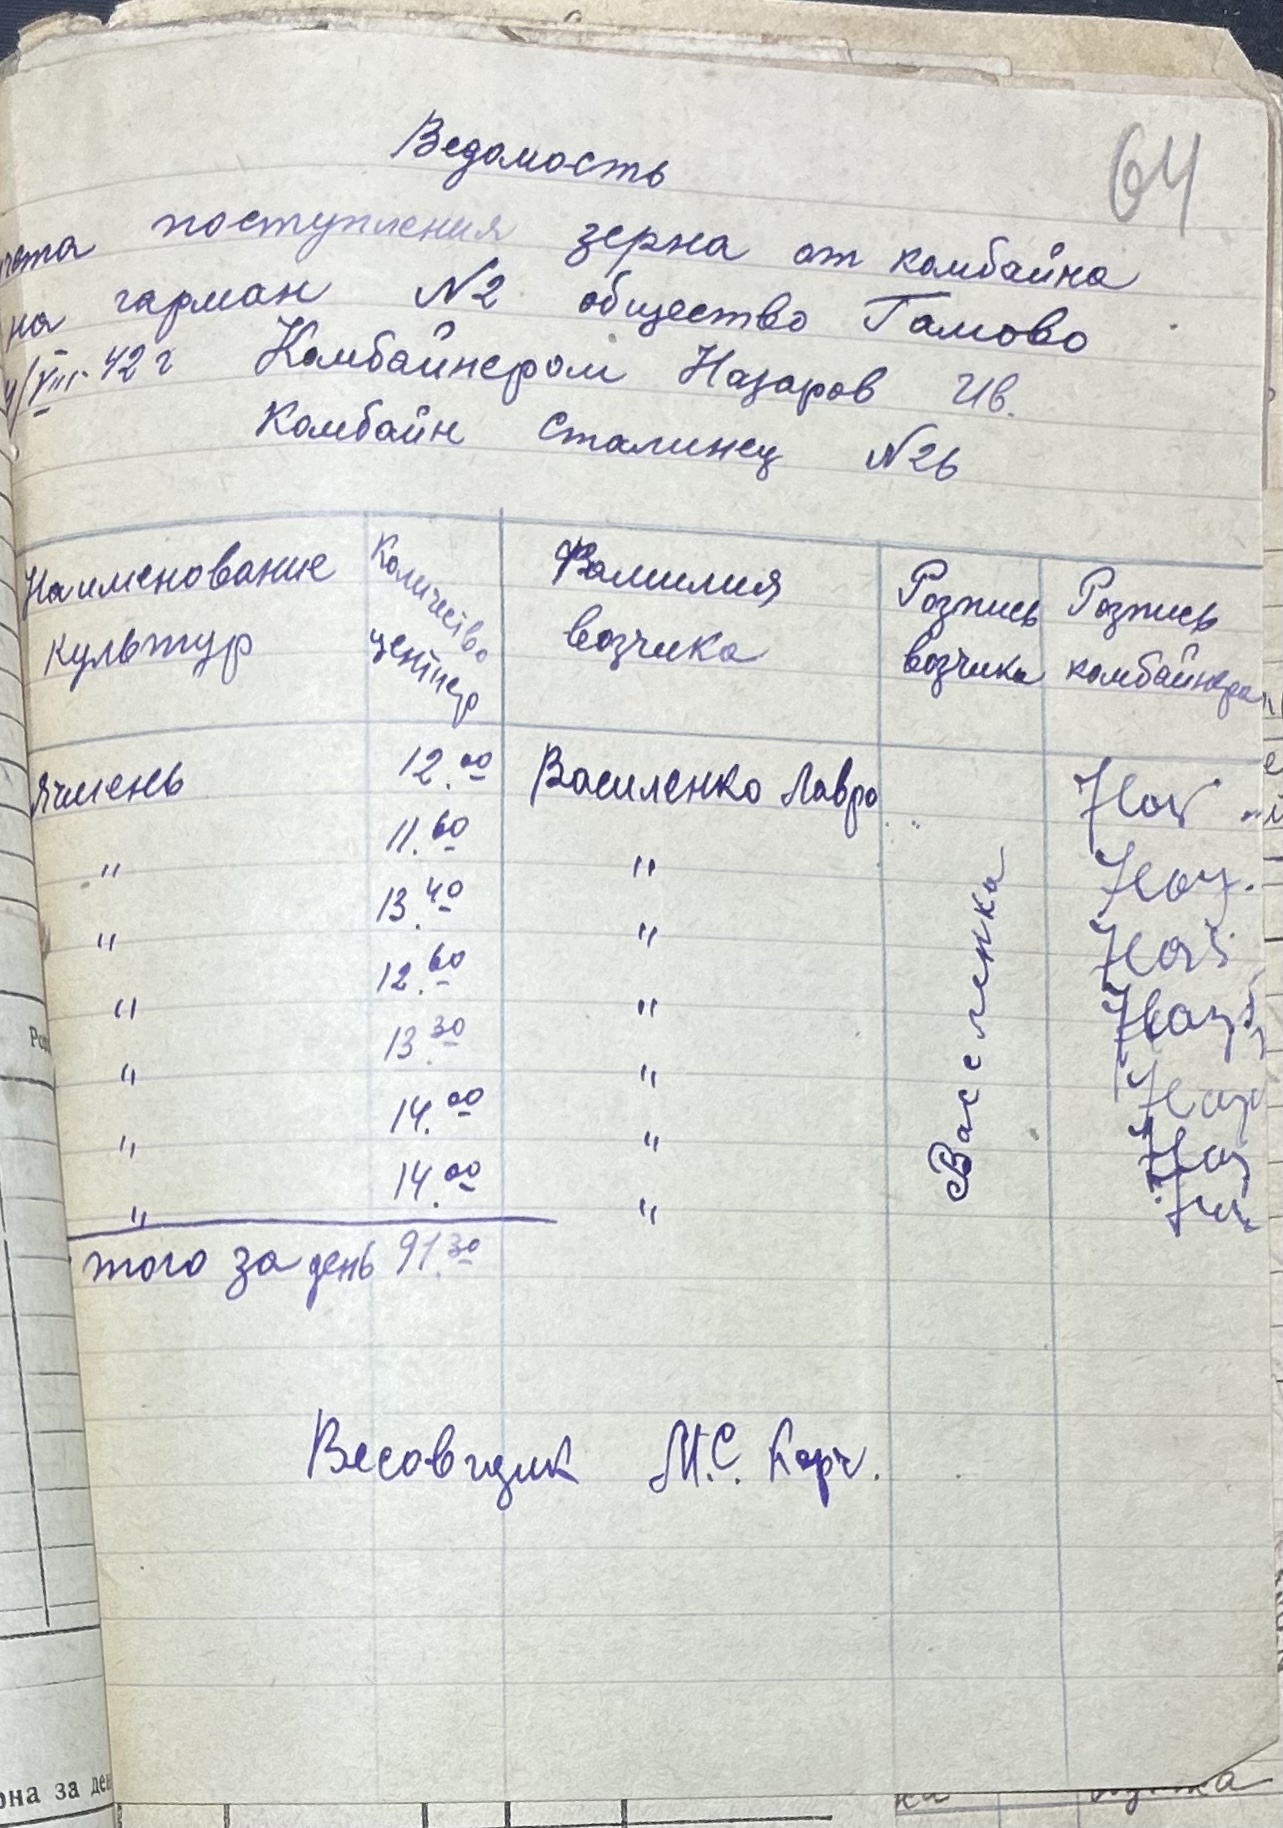 64
Ведомость
учета поступления зерна от комбайна
на гарман №2 общество Гамово
/VIII-42 г Комбайнером Назаров Ив.
Комбайн Сталинец №26
Наименование культур Количество центнер Фамилия возчика Розпись возчика Розпись комбайнера
Ячмень 12.00 Василенко Лавро Наз
" 11.60 " Наз.
" 13.40 " Наз
" 12.60 " Наз
" 13.30 " Наз
" 14.00 " Наз
" 14.00 "
Василенка
того за день 91.30
Весовщик М.С. Корч.
она за ден